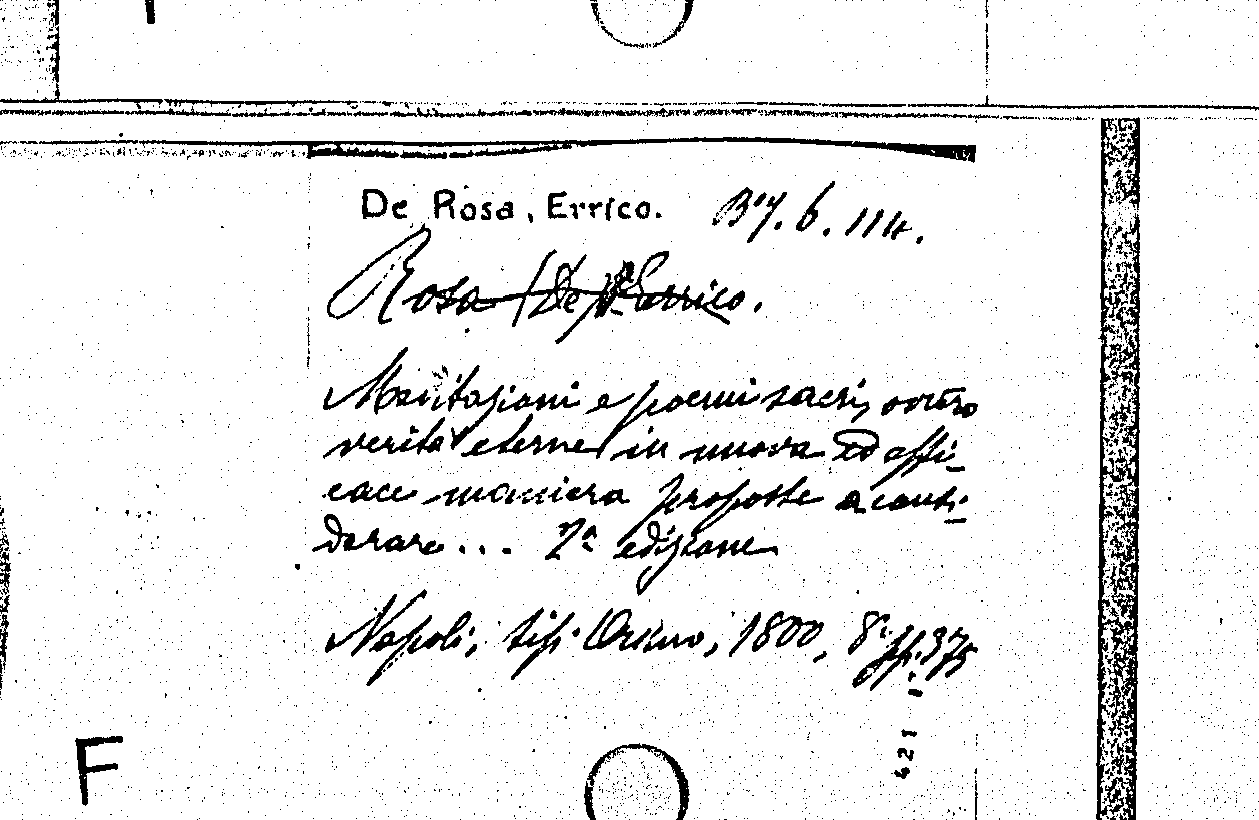 De Rosa, Errico. B*y. 6. 114.
Rosa (De) Errico.
Meditazioni e poemi sacri, ovvero
verità eterne in nuova ed effi-
cace maniera proposte a consi-
derare... 2ª edizione
Napoli, tip. Orsino, 1800, 8º, pp. 375
421
F